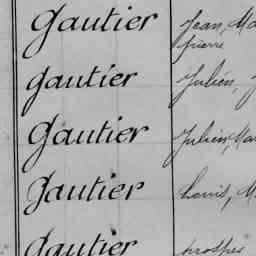 Gautier Jean, Ma
Pierre
Gautier Julien, J
Gautier Julien, Mar
Gautier Louis, M
Gautier Prosper